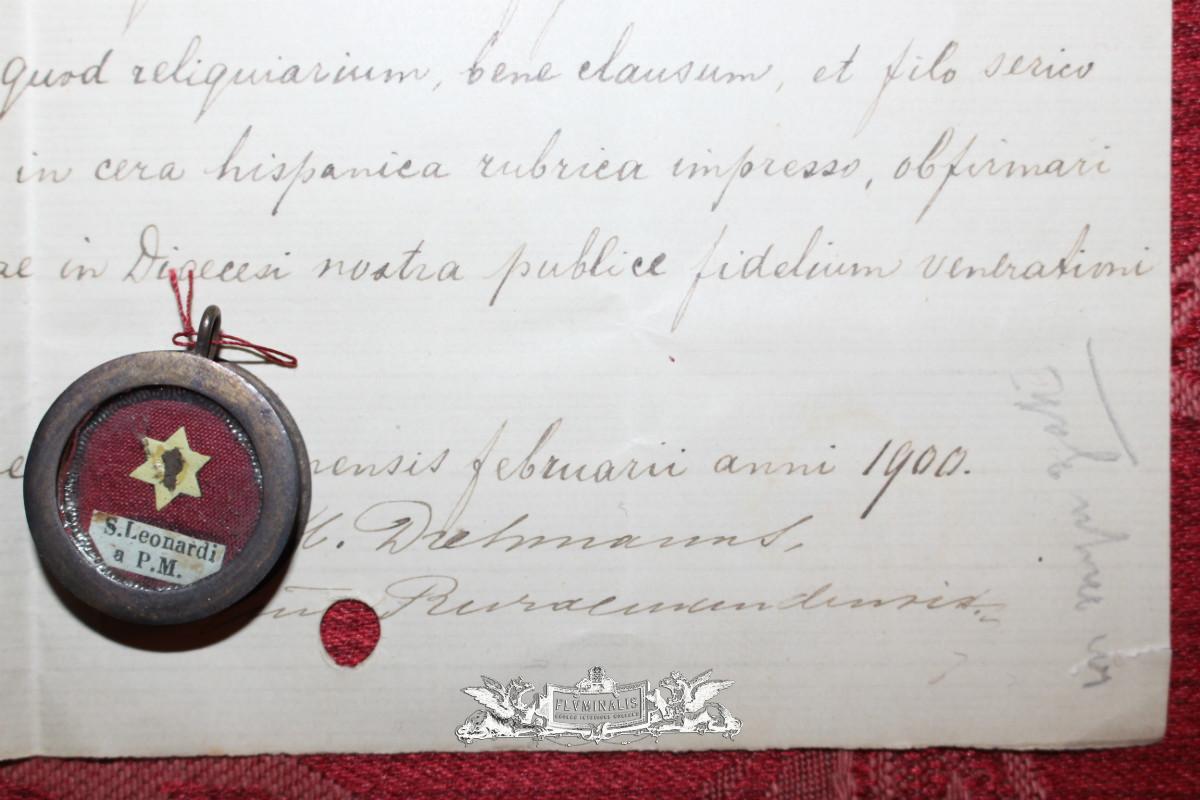 quod reliquiarium, bene clausum, et filo serico
in cera hispanica rubrica impresso, obfirmari
ae in Dioecesi nostra publice fidelium venerationi
mensis februarii anni 1900.
S. Leonardi
a P.M.
Ruraemundensis
FLVMINALIS